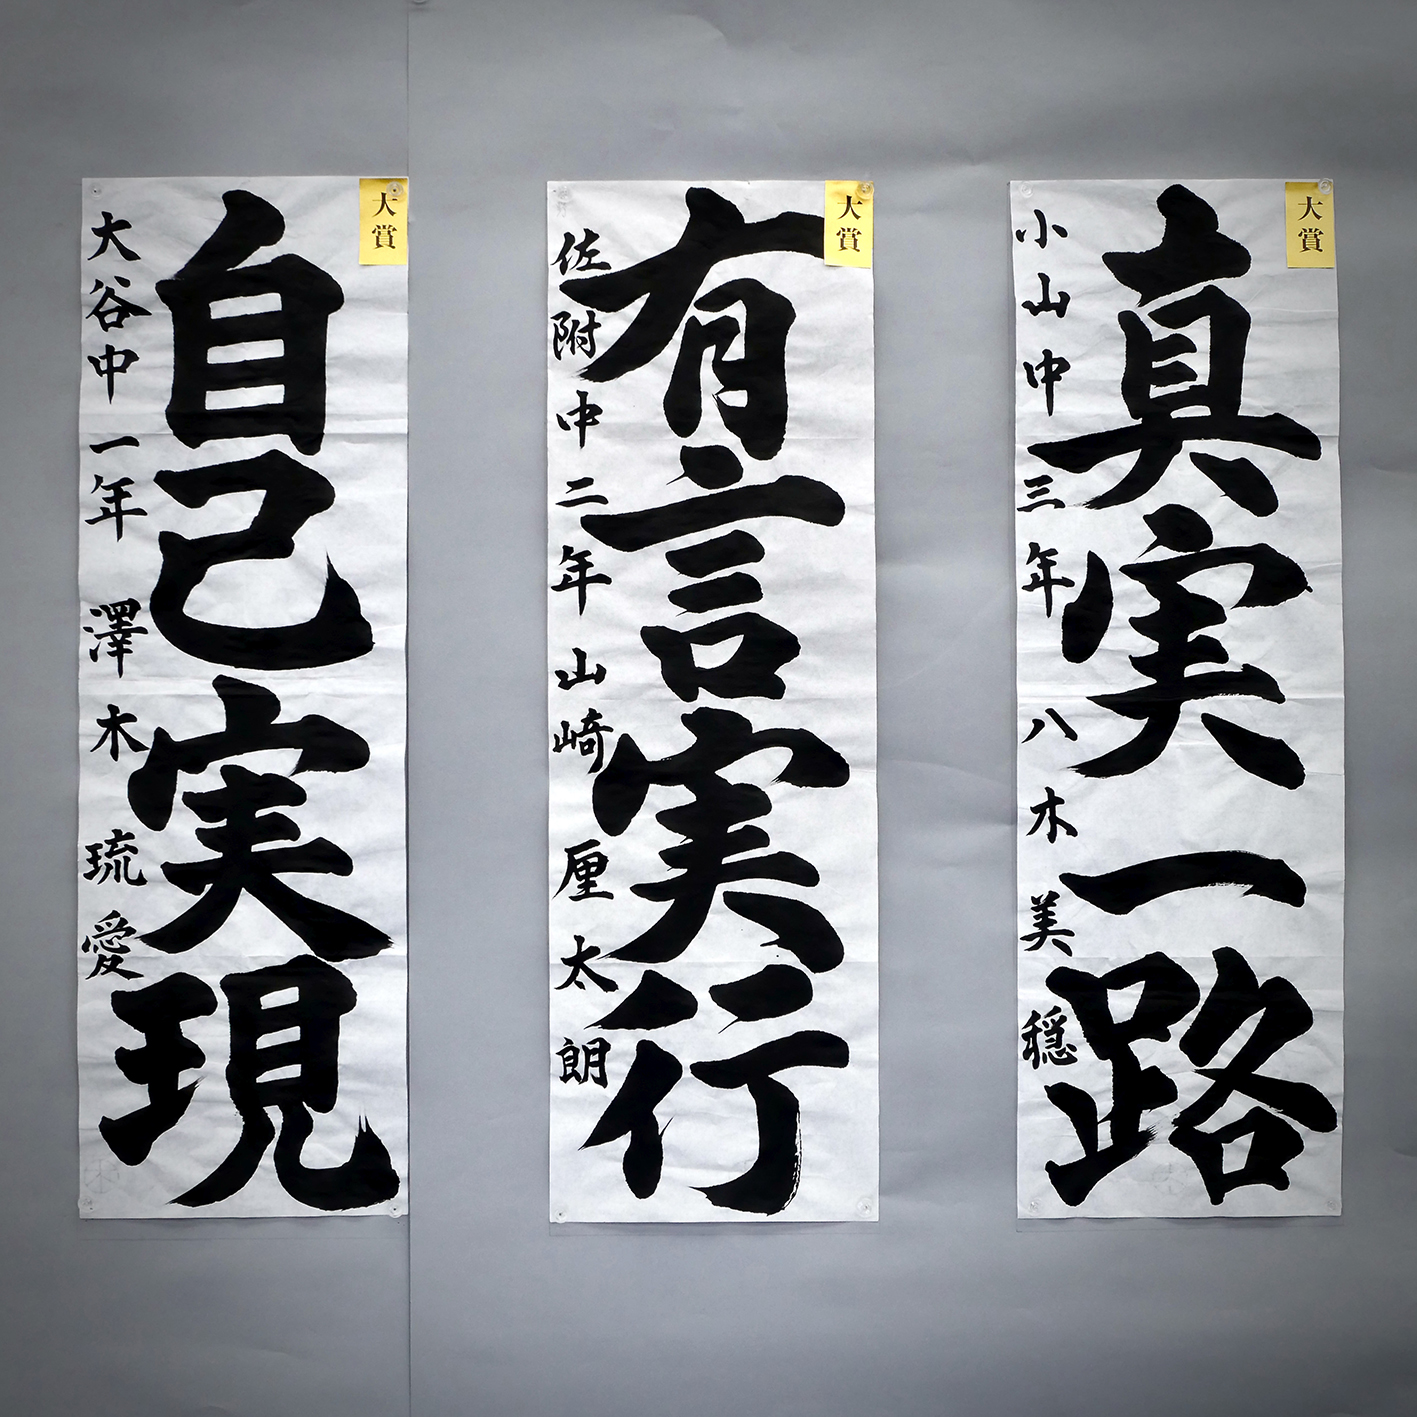 大賞
真実一路
小山中三年 八木美穏
大賞
有言実行
佐附中二年 山崎厘太朗
大賞
自己実現
大谷中一年 澤木琉愛